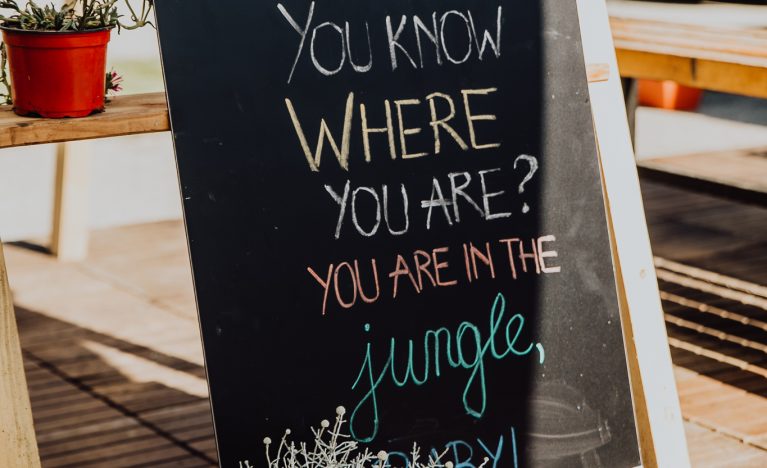 YOU KNOW
WHERE
YOU ARE?
YOU ARE IN THE
jungle,
BABY!